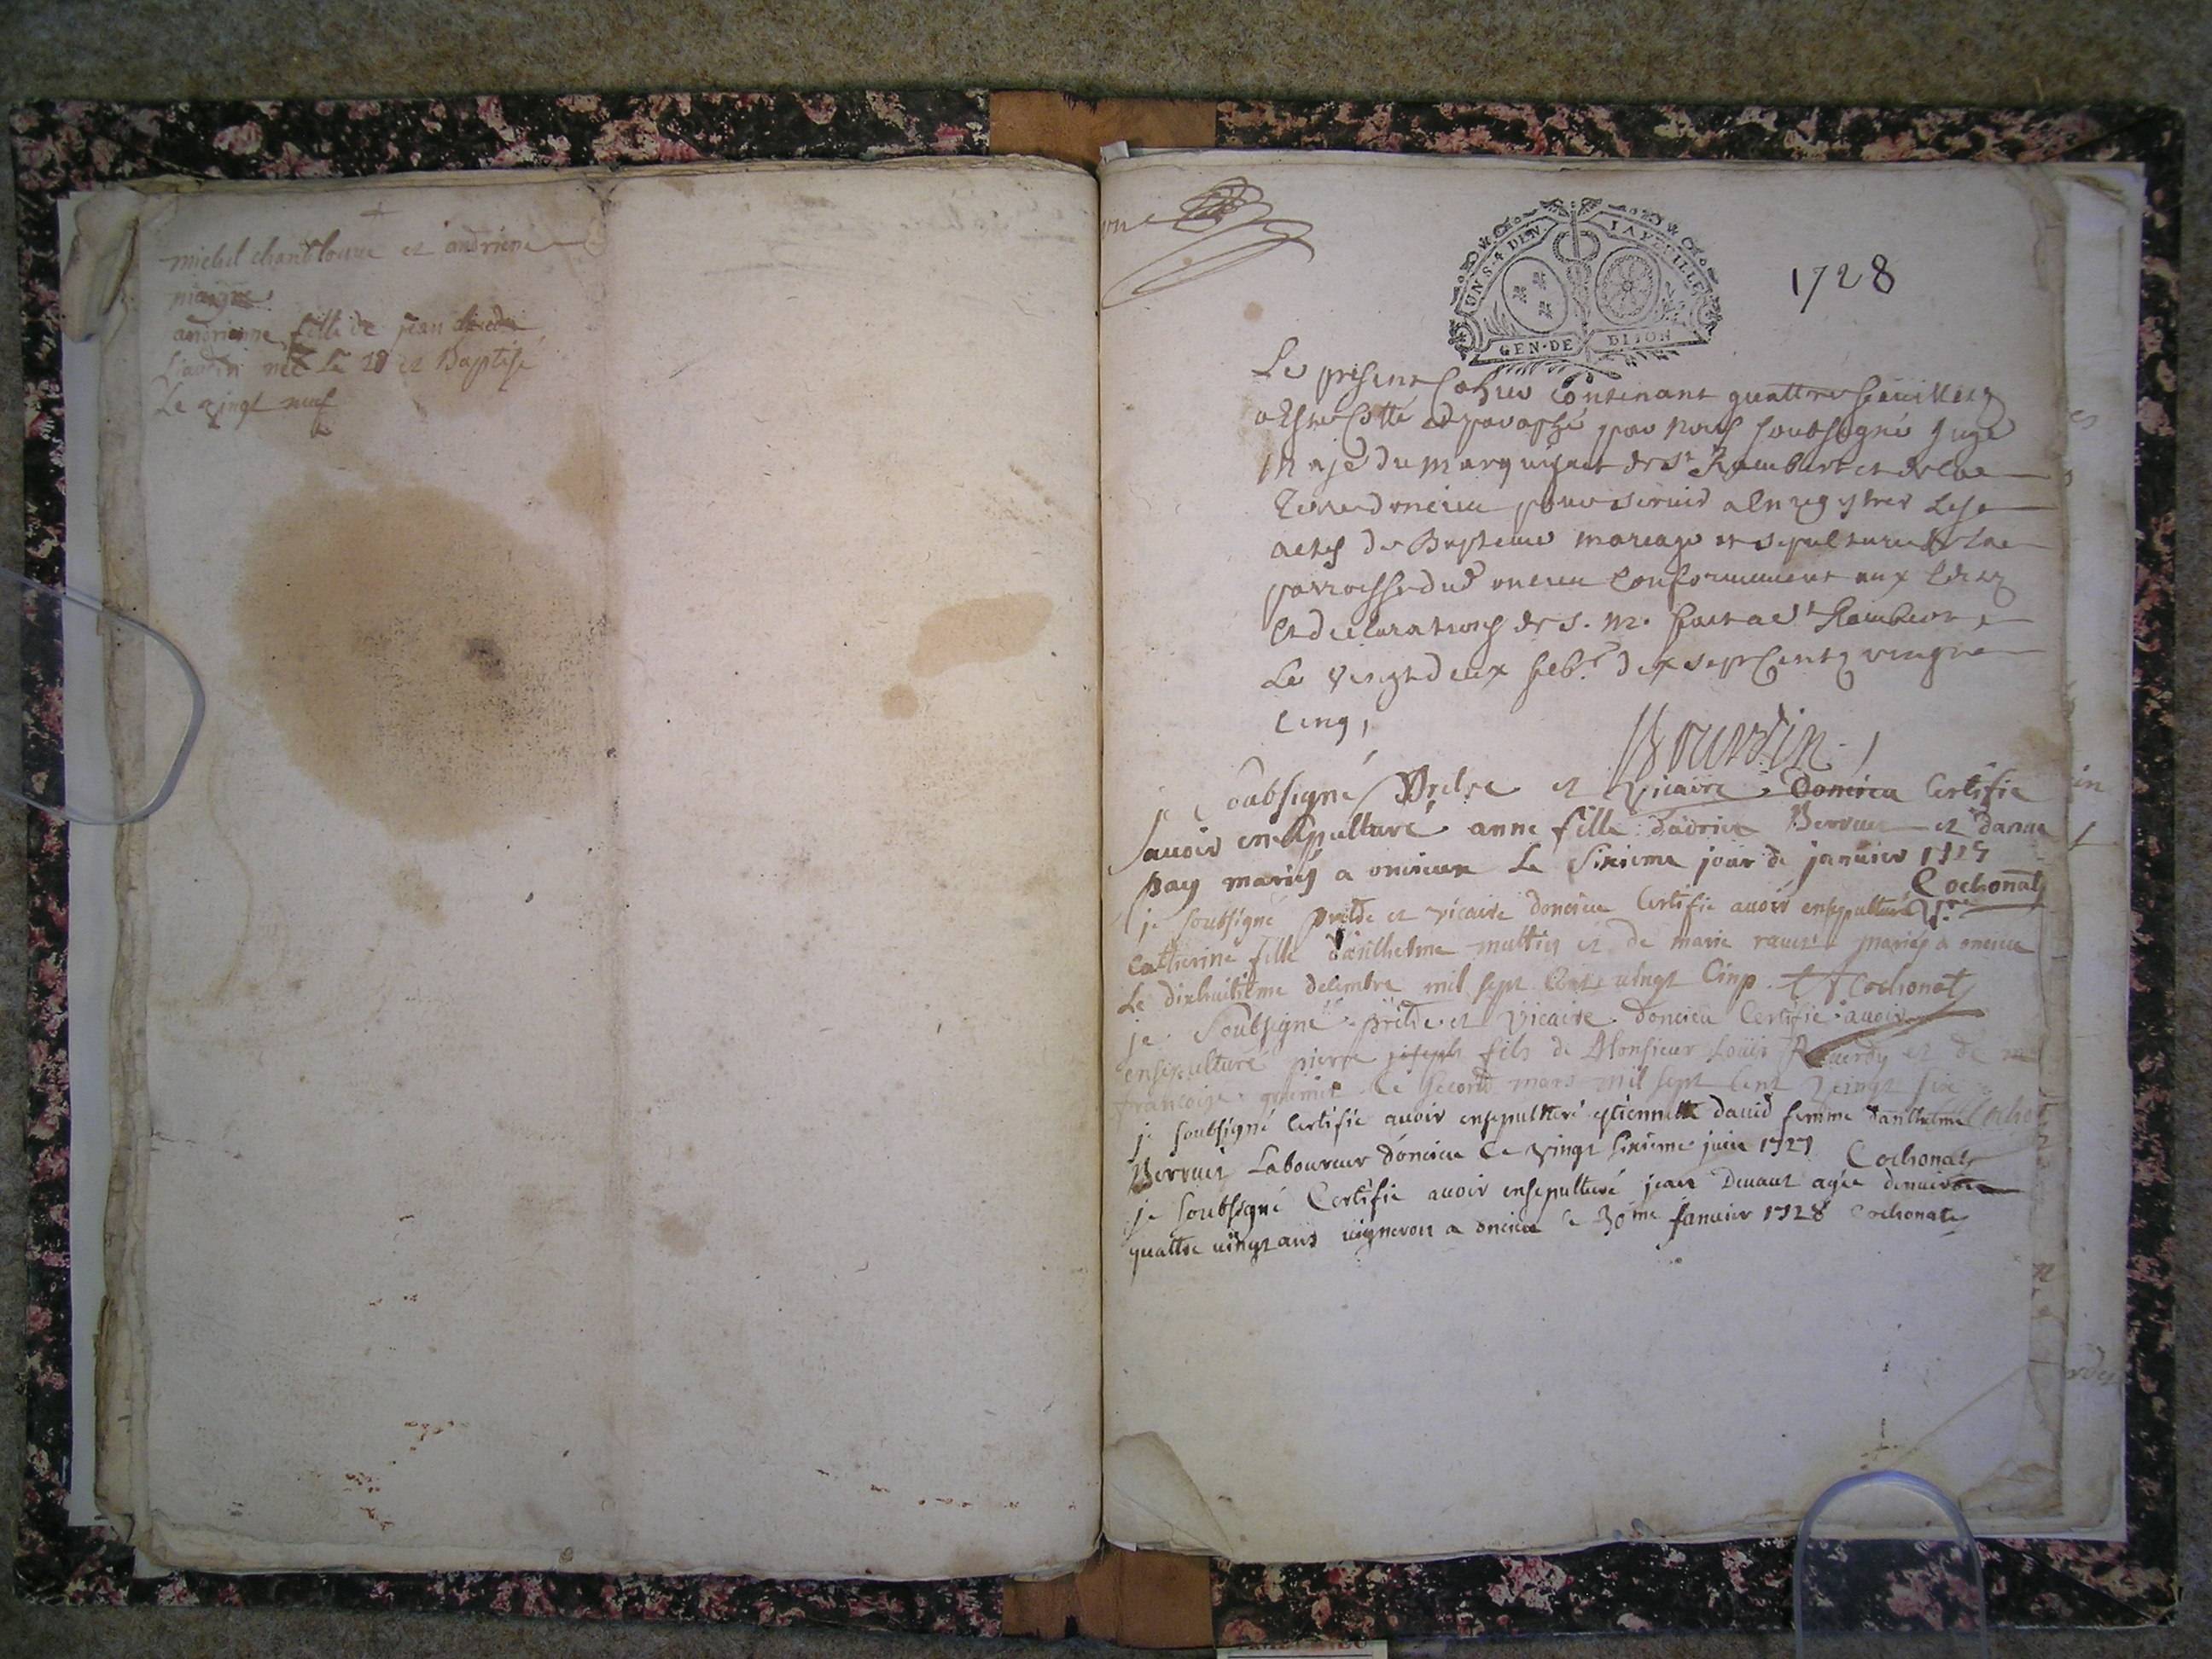 michel chantlouue et andriene
andrienne fille de jean
née le 28 et Baptisé
Le vingt neuf
UN S. 4 DEN LA FEUILLE
GEN. DE DIJON
1728
Le present Cahier Contenant quattre feuillets
a Estre Cotté et paraphé par nous soubsigné Juge
Maje du marquisat de St Rambert et de la
Terre doncieu pour servir a Enregistrer Les
actes de Bapteme mariage et sepulture de la
parroisse dud oncieu Conformement aux Edits
Et declarations de S. M. fait a St Rambert
Le Vingt deux feb.r dix sept Cents vingt
Cinq,
je soubsigné Pretre et Vicaire doncieu Certifie
avoir ensepulturé anne fille dadrien Berruet et danne
Bay mariés a oncieux Le Sixieme jour de janvier
Cochonat
je soubsigné pretre et vicaire doncieu Certifie avoir ensepulturé
Catherine fille danthelme et de marie mariés a oncieu
Le dixhuitieme decembre mil sept Cents vingt Cinq. Cochonat
je soubsigné pretre et Vicaire doncieu Certifie avoir
ensepulturé pierre joseph fils de Monsieur Louis et de
francoise le second mars mil sept Cent Vingt six
je soubsigné Certifie avoir ensepulturé etiennette david femme danthelme
Berruet Laboureur doncieu Le vingt sixieme juin 1727 Cochonat
je soubsigné Certifie avoir ensepulturé jean Devaux agée denviron
quattre vingt ans vigneron a oncieu le 30me janvier 1728 Cochonat